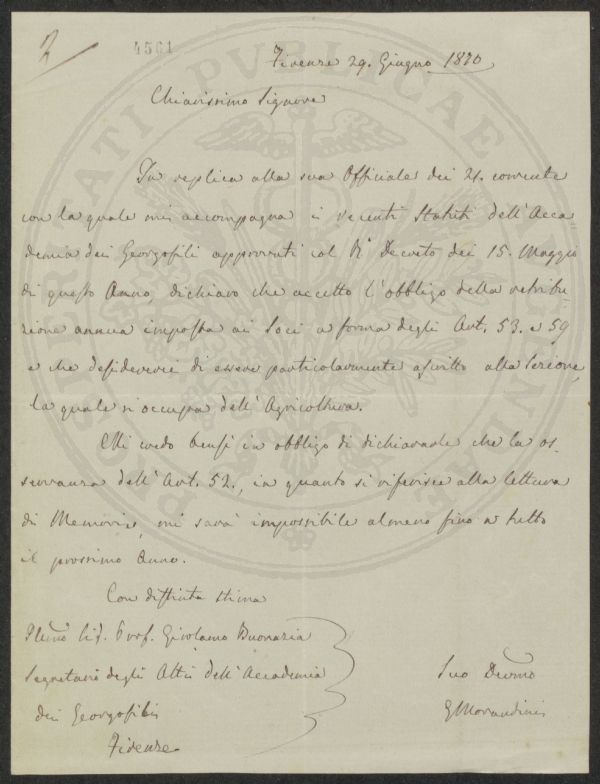 2
4501
Firenze 29. Giugno 1870
Chiarissimo Signore
In replica alla sua Officiale dei 21. corrente
con la quale mi accompagna i recenti Statuti dell'Acca
demia dei Georgofili approvati col R° Decreto dei 15. Maggio
di questo Anno, dichiaro che accetto l'obbligo della retribu
zione annua imposta ai Soci a forma degli Art. 53. e 59
e che desidererei di essere particolarmente ascritto alla Sezione,
la quale si occupa dell'Agricoltura.
Mi credo bensì in obbligo di dichiararle che la os-
servanza dell'Art. 52., in quanto si riferisce alla lettura
di Memorie, mi sarà impossibile almeno fino a tutto
il prossimo Anno.
Con distinta stima
Sig. Prof. Girolamo Buonazia
Segretario degli Atti dell'Accademia
dei Georgofili
Firenze
Suo Devmo
GMorandini